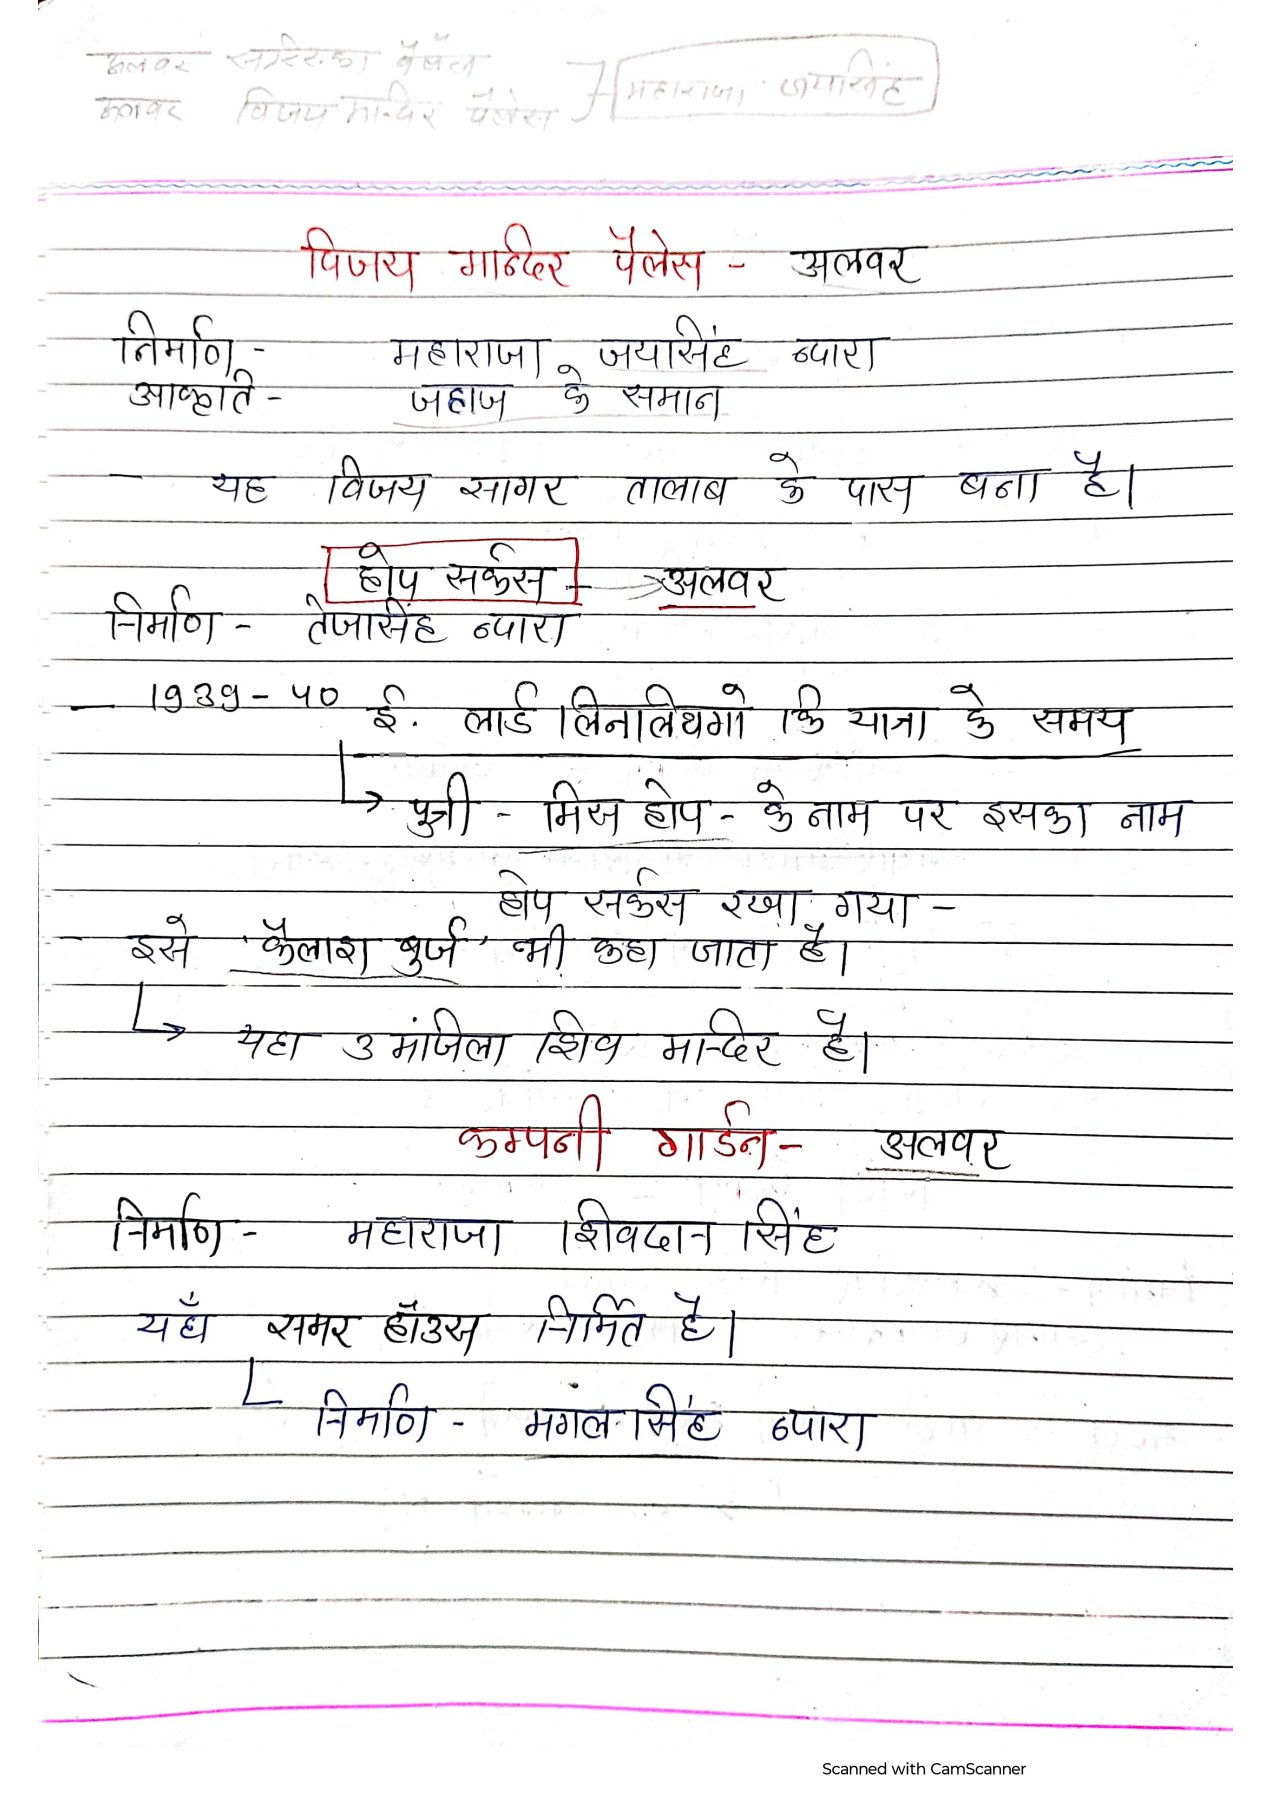 अलवर सरिस्का पैलेस
अलवर विजय मन्दिर पैलेस महाराजा जयसिंह
विजय मन्दिर पैलेस - अलवर
निर्माण - महाराजा जयसिंह द्वारा
आकृति - जहाज के समान
- यह विजय सागर तालाब के पास बना है।
होप सर्कस - → अलवर
निर्माण - तेजसिंह द्वारा
- 1939-40 ई. लार्ड लिनलिथगो कि यात्रा के समय
↳ पुत्री - मिस होप - के नाम पर इसका नाम
होप सर्कस रखा गया -
- इसे 'कैलाश बुर्ज' भी कहा जाता है।
↳ यहा 3 मंजिला शिव मन्दिर है।
कम्पनी गार्डन - अलवर
निर्माण - महाराजा शिवदान सिंह
यहाँ समर हॉउस निर्मित है।
निर्माण - मंगल सिंह द्वारा
Scanned with CamScanner